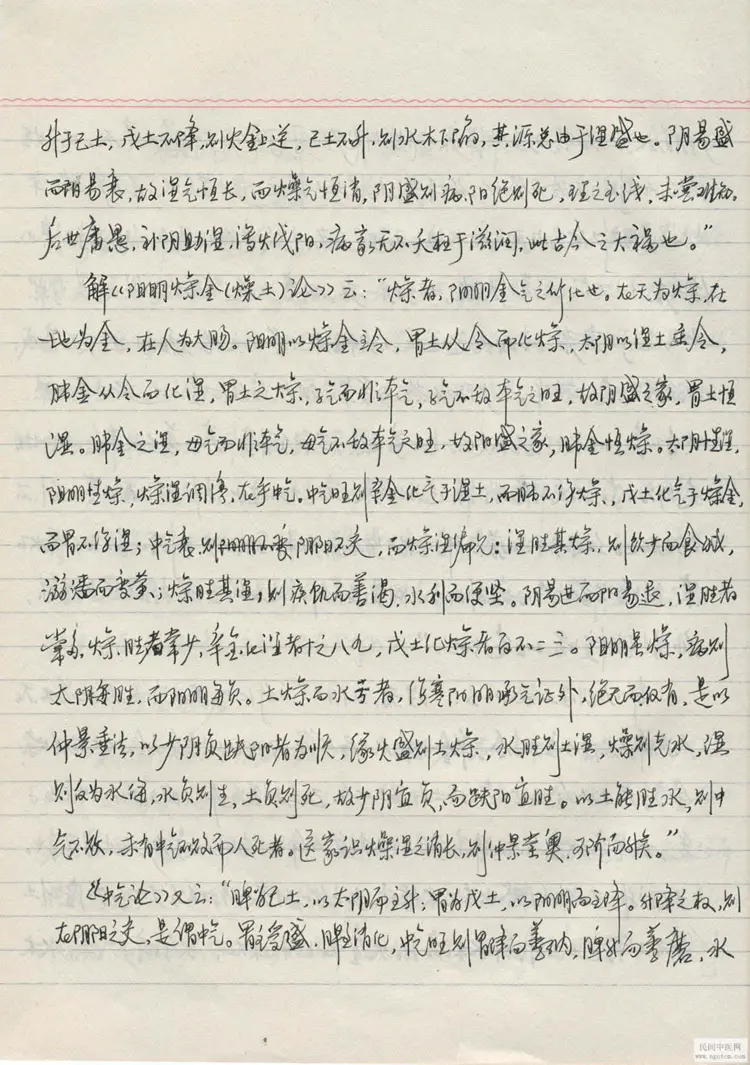 升于己土，戊土不降，则火金上逆，己土不升，则水木下陷，其源总由于湿盛也。阴易盛
而阳易衰，故湿气恒长，而燥气恒消，阴盛则病，阳绝则死，理之至浅，未尝难知。
后世庸愚，补阴助湿，泻火伐阳，病家无不夭枉于滋润，此古今之大祸也。”
解《阳明燥金(燥土)论》云：“燥者，阳明金气之所化也。在天为燥，在
地为金，在人为大肠。阳明以燥金主令，胃土从令而化燥，太阴以湿土主令，
肺金从令而化湿，胃土之燥，子气而非本气，子气不敌本气之旺，故阴盛之家，胃土恒
湿。肺金之湿，母气而非本气，母气不敌本气之旺，故阳盛之家，肺金恒燥。太阴性湿，
阳明性燥，燥湿调停，在乎中气。中气旺则辛金化气于湿土，而肺不伤燥，戊土化气于燥金，
而胃不伤湿；中气衰，则阴阳不交，而燥湿偏见：湿胜其燥，则饮少而食减，
溺涩而便滑；燥胜其湿，则疾饥而善渴，水利而便坚。阴易进而阳易退，湿胜者
常多，燥胜者常少，辛金化湿者十之八九，戊土化燥者百不二三。阳明虽燥，病则
太阴每胜，而阳明每负。土燥而水亏者，伤寒阳明承气证外，绝无而仅有，是以
仲景垂法，以少阴负趺阳者为顺，缘火盛则土燥，水胜则土湿，燥则克水，湿
则反为水侮，水负则生，土负则死，故少阴宜负，而趺阳宜胜。以土能胜水，则中
气不败，未有中气不败而人死者。医家识燥湿之消长，则仲景堂奥，可阶而升矣。”
《中气论》又云：“脾为己土，以太阴而主升；胃为戊土，以阳明而主降。升降之权，则
在阴阳之交，是谓中气。胃主受盛，脾主消化，中气旺则胃降而善纳，脾升而善磨，水
民间中医网
www.ngotcm.com